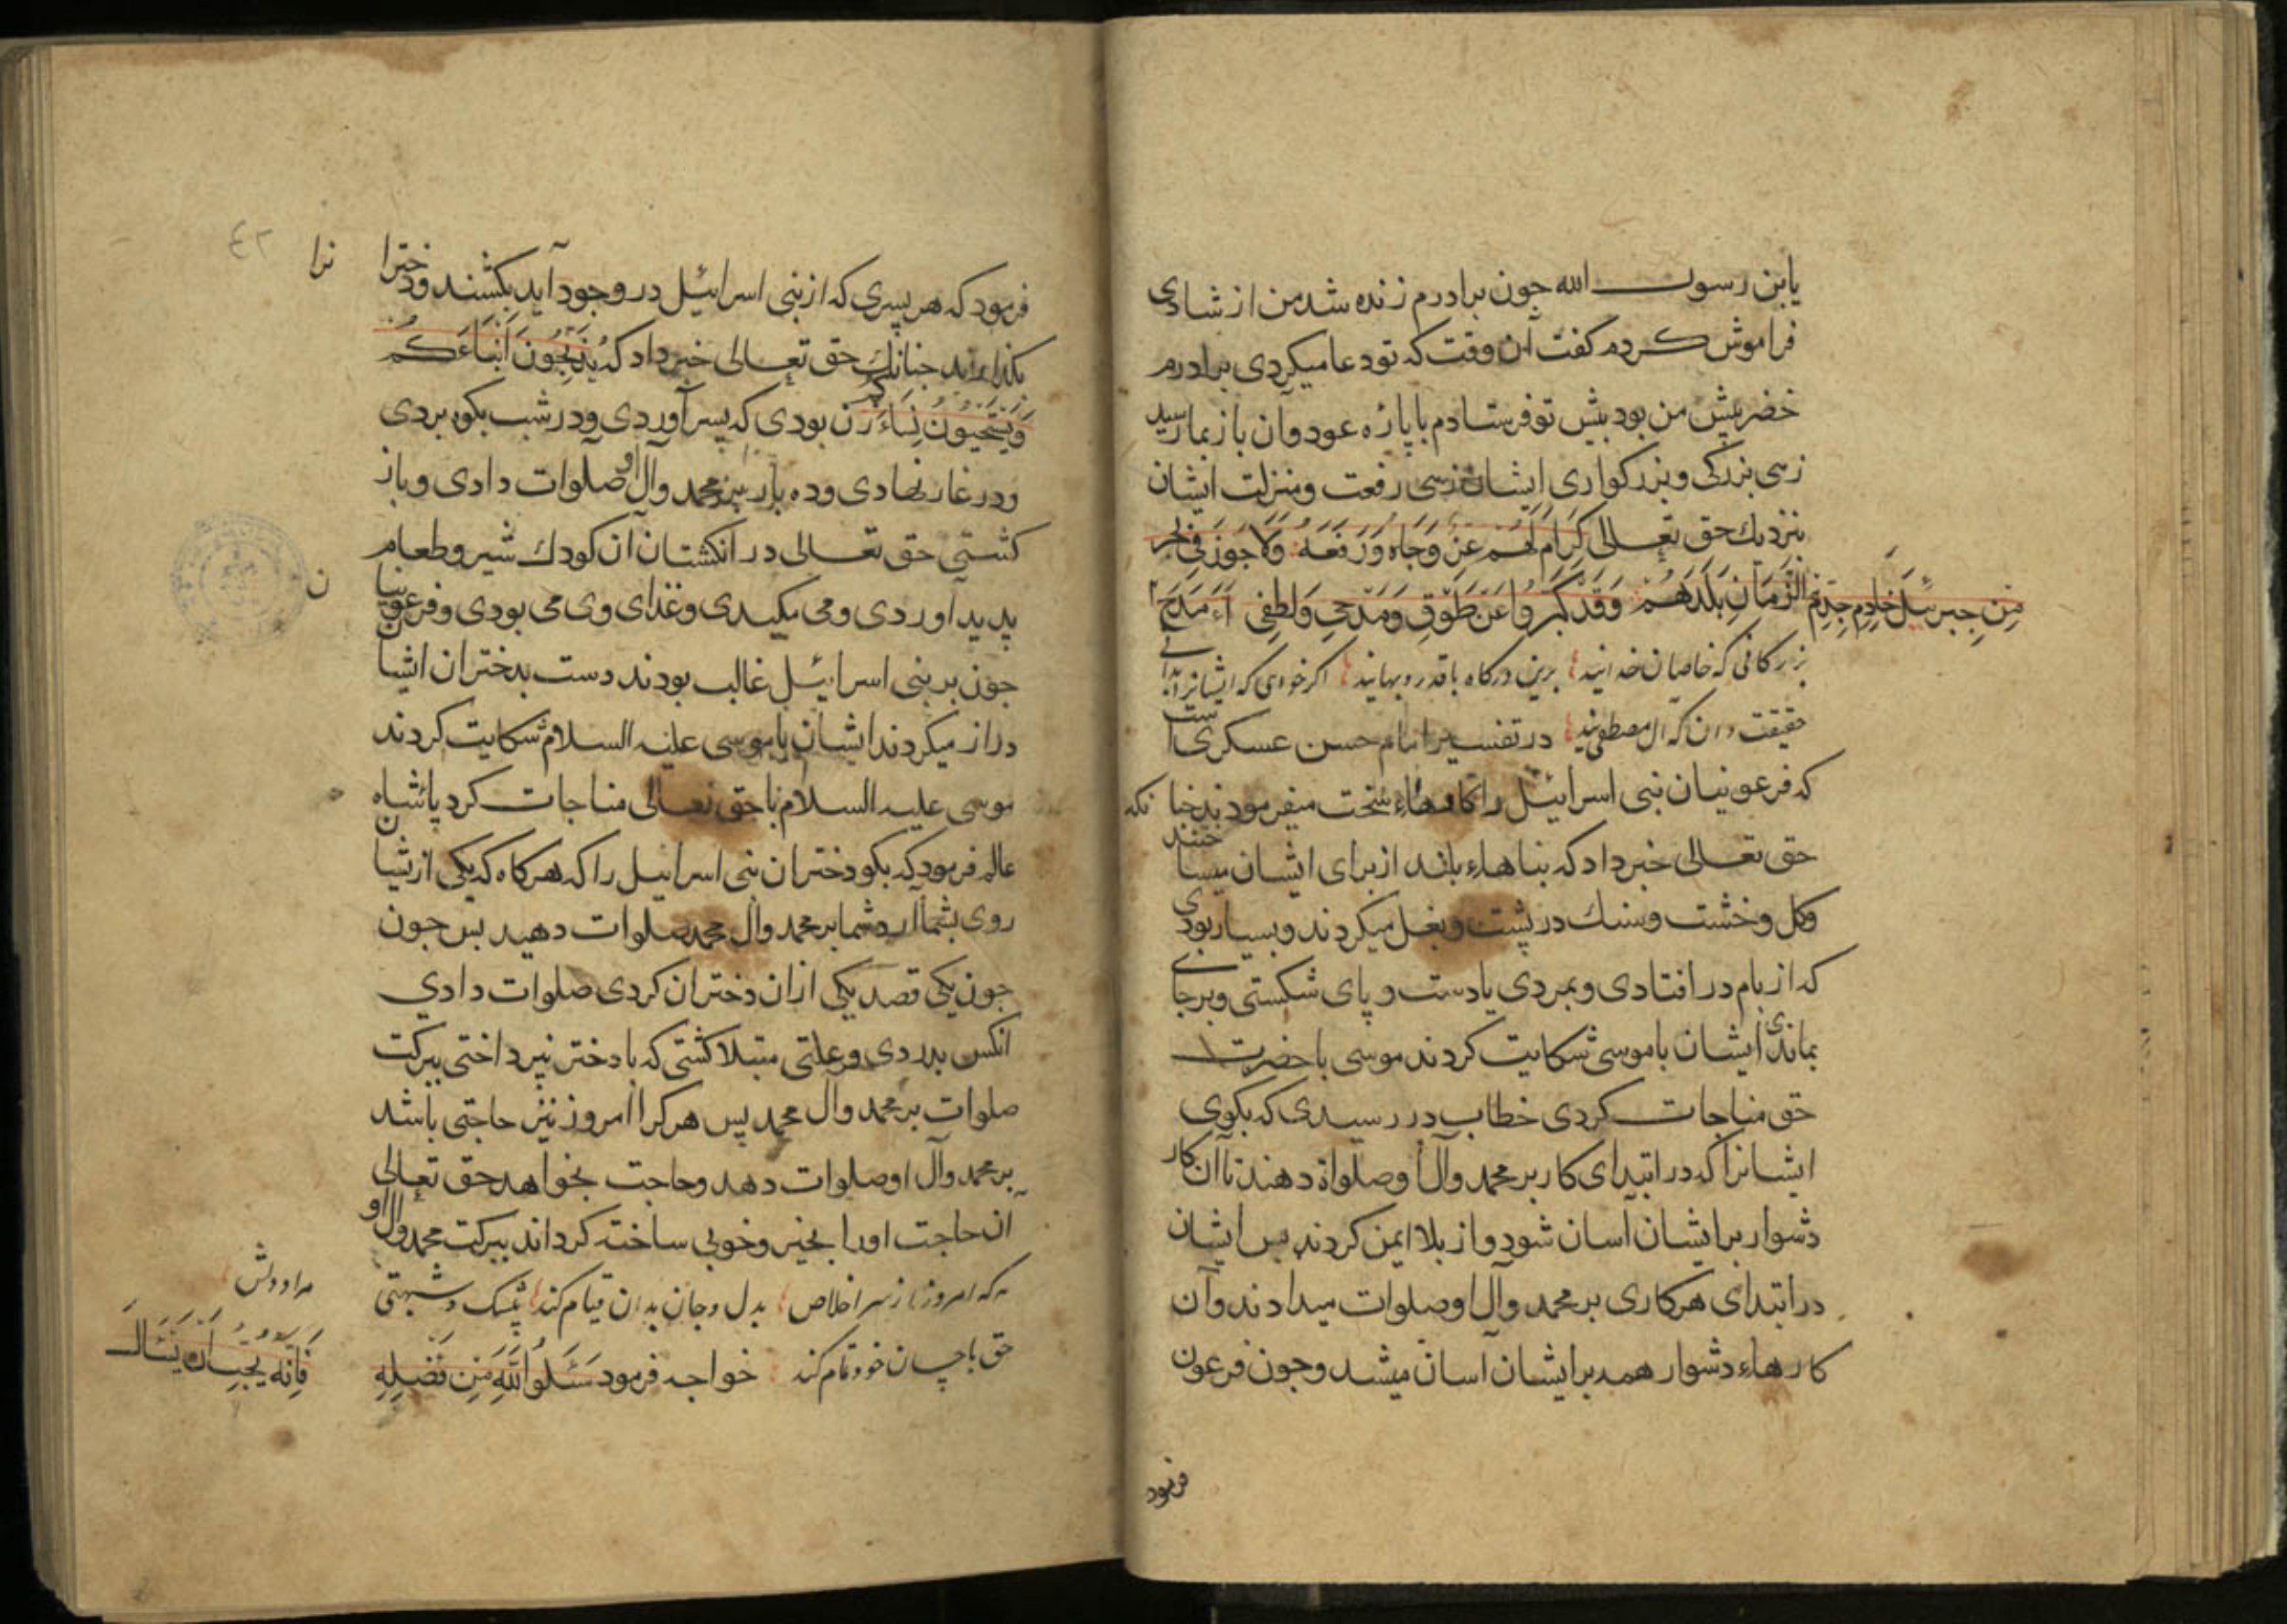 یابن رسول الله جون برادرم زنده شد من از شادی
فراموش کردم گفت آن وقت که تو دعا میکردی برادرم
خضر پیش من بود پیش تو فرستادم با پاره عود و آن باز بما رسید
زهی بزرکی و بزرکواری ایشان زهی رفعت و منزلت ایشان
بنزدیك حق تعالی کرام لهم عز و جاه و رفعة
من جبرئیل خادم جدهم
بزرکانی که خاصان خدانید برین درکاه با قدر و بهانید اکر خواهی که ایشانرا
حقیقت دان که ال مصطفی اند در تفسیر امام حسن عسکری است
که فرعونیان بنی اسرائیل را کارهاء سخت میفرمودند چنانکه
حق تعالی خبر داد که بناهاء بلند از برای ایشان میساختند
وکل و خشت و سنك در پشت و بغل میکردند و بسیار بودی
که از بام در افتادی و بمردی یا دست و پای شکستی و بر جای
بماندی ایشان با موسی شکایت کردند موسی با حضرت
حق مناجات کردی خطاب در رسیدی که بکوی
ایشانرا که در ابتدای کار بر محمد و آل او صلواة دهند تا آن کار
دشوار بر ایشان آسان شود و از بلا ایمن کردند پس ایشان
در ابتدای هر کاری بر محمد و آل او صلوات میدادند و آن
کارهاء دشوار همه بر ایشان آسان میشد و جون فرعون
فرمود
فرمود که هر پسری که از بنی اسرائیل در وجود آید بکشند و دخترانرا
بکذارند جنانك حق تعالی خبر داد که یذبحون ابناءکم
ویستحیون نساءکم زن بودی که پسر آوردی و در شب بکوه بردی
و در غار نهادی و ده بار بر محمد و آل او صلوات دادی و باز
کشتی حق تعالی در انکشتان آن کودك شیر و طعام
پدید آوردی و می مکیدی و غذای وی می بودی و فرعونیان
جون بر بنی اسرائیل غالب بودند دست بدختران ایشان
دراز میکردند ایشان با موسی علیه السلام شکایت کردند
موسی علیه السلام با حق تعالی مناجات کرد پادشاه
عالم فرمود که بکو دختران بنی اسراییل را که هر کاه که یکی از ایشان
روی بشما آرد شما بر محمد وآل محمد صلوات دهید پس جون
جون یکی قصد یکی ازان دختران کردی صلوات دادی
انکس بدردی و علتی مبتلا کشتی که با دختر نپرداختی ببرکت
صلوات بر محمد و آل محمد پس هر کرا امروز نیز حاجتی باشد
بر محمد وآل او صلوات دهد و حاجت بخواهد حق تعالی
آن حاجت اورا بخیر و خوبی ساخته کرداند ببرکت محمد وال او
هر که امروز از سر اخلاص بدل و جان بدان قیام کند بیشک و شبهتی مراودش
حق باحسان خود تمام کند خواجه فرمود سئلوا الله من فضله فانه یحب ان یسئال
٤٢